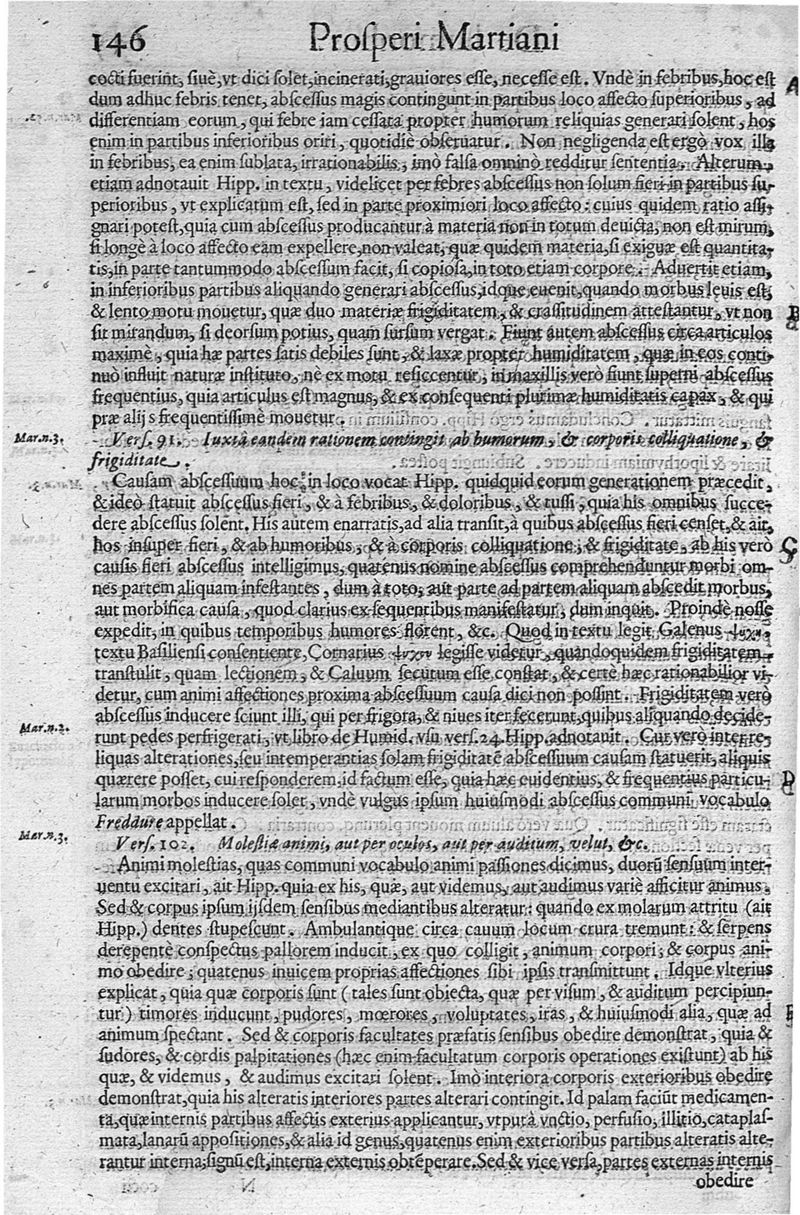 146 Proſperi Martiani
cocti fuerint, ſiuè, vt dici ſolet, incinerati, grauiores eſſe, neceſſe eſt. Vndè in febribus, hoc eſt
dum adhuc febris tenet, abſceſſus magis contingunt in partibus loco affecto ſuperioribus, ad
differentiam eorum, qui febre iam ceſſata propter humorum reliquias generari ſolent, hos
enim in partibus inferioribus oriri, quotidiè obſeruatur. Non negligenda eſt ergò vox illa
in febribus, ea enim ſublata, irrationabilis, imò falſa omninò redditur ſententia. Alterum
etiam adnotauit Hipp. in textu, videlicet per febres abſceſſus non ſolum fieri in partibus ſu-
perioribus, vt explicatum eſt, ſed in parte proximiori loco affecto: cuius quidem ratio aſſi-
gnari poteſt, quia cum abſceſſus producantur à materia non in totum deuicta, non eſt mirum,
ſi longè à loco affecto eam expellere, non valeat, quæ quidem materia, ſi exiguæ eſt quantita-
tis, in parte tantummodo abſceſſum facit, ſi copioſa, in toto etiam corpore. Aduertit etiam,
in inferioribus partibus aliquando generari abſceſſus, idque euenit, quando morbus leuis eſt,
& lento motu mouetur, quæ duo materiæ frigiditatem, & craſſitudinem atteſtantur, vt non
ſit mirandum, ſi deorſum potius, quam ſurſum vergat. Fiunt autem abſceſſus circa articulos
maximè, quia hæ partes ſatis debiles ſunt, & laxæ propter humiditatem, quæ in eos conti-
nuò influit naturæ inſtituto, nè ex motu reſiccentur, in maxillis verò fiunt ſuperni abſceſſus
frequentius, quia articulus eſt magnus, & ex conſequenti plurimæ humiditatis capax, & qui
præ alijs frequentiſſimè mouetur.
Mar.n.3. Verſ. 91. Iuxtà eandem rationem contingit ab humorum, & corporis colliquatione, &
frigiditate.
Cauſam abſceſſuum hoc in loco vocat Hipp. quidquid eorum generationem præcedit,
& ideò ſtatuit abſceſſus fieri, & à febribus, & doloribus, & tuſſi, quia his omnibus ſucce-
dere abſceſſus ſolent. His autem enarratis, ad alia tranſit, à quibus abſceſſus fieri cenſet, & ait,
hos inſuper fieri, & ab humoribus, & à corporis colliquatione, & frigiditate, ab his verò
cauſis fieri abſceſſus intelligimus, quatenus nomine abſceſſus comprehenduntur morbi om-
nes partem aliquam infeſtantes, dum à toto, aut parte ad partem aliquam abſcedit morbus,
aut morbifica cauſa, quod clarius ex ſequentibus manifeſtatur, dum inquit. Proindè noſſe
expedit, in quibus temporibus humores florent, &c. Quod in textu legit Galenus
textu Baſilienſi conſentiente, Cornarius legiſſe videtur, quandoquidem frigiditatem
tranſtulit, quam lectionem, & Caluum ſecutum eſſe conſtat, & certè hæc rationabilior vi-
detur, cum animi affectiones proxima abſceſſuum cauſa dici non poſſint. Frigiditatem verò
abſceſſus inducere ſciunt illi, qui per frigora, & niues iter fecerunt, quibus aliquando decide-
Mar.n.2. runt pedes perfrigerati, vt libro de Humid. vſu verſ. 24. Hipp. adnotauit. Cur verò inter re-
liquas alterationes, ſeu intemperantias ſolam frigiditatē abſceſſuum cauſam ſtatuerit, aliquis
quærere poſſet, cui reſponderem, id factum eſſe, quia hæc euidentius, & frequentius particu-
larum morbos inducere ſolet, vndè vulgus ipſum huiuſmodi abſceſſus communi vocabulo
Freddure appellat.
Mar.n.3. Verſ. 102. Moleſtiæ animi, aut per oculos, aut per auditum, velut, &c.
Animi moleſtias, quas communi vocabulo animi paſſiones dicimus, duorū ſenſuum inter-
uentu excitari, ait Hipp. quia ex his, quæ, aut videmus, aut audimus variè afficitur animus.
Sed & corpus ipſum ijſdem ſenſibus mediantibus alteratur: quando ex molarum attritu (ait
Hipp.) dentes ſtupeſcunt. Ambulantique circa cauum locum crura tremunt: & ſerpens
derepentè conſpectus pallorem inducit, ex quo colligit, animum corpori; & corpus ani-
mo obedire; quatenus inuicem proprias affectiones ſibi ipſis tranſmittunt. Idque vlterius
explicat, quia quæ corporis ſunt (tales ſunt obiecta, quæ per viſum, & auditum percipiun-
tur) timores inducunt, pudores, mœrores, voluptates, iras, & huiuſmodi alia, quæ ad
animum ſpectant. Sed & corporis facultates præfatis ſenſibus obedire demonſtrat, quia &
ſudores, & cordis palpitationes (hæc enim facultatum corporis operationes exiſtunt) ab his
quæ, & videmus, & audimus excitari ſolent. Imò interiora corporis exterioribus obedire
demonſtrat, quia his alteratis interiores partes alterari contingit. Id palam faciūt medicamen-
ta, quæ internis partibus affectis exterius applicantur, vtputà vnctio, perfuſio, illitio, cataplaſ-
mata, lanarū appoſitiones, & alia id genus, quatenus enim exterioribus partibus alteratis alte-
rantur interna; ſignū eſt, interna externis obtēperare. Sed & vice verſa, partes externas internis
obedire